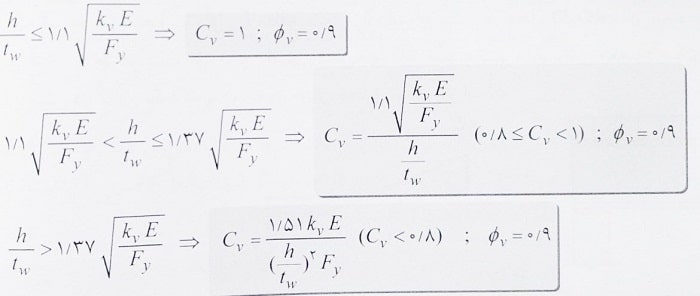 h/t_w ≤ ۱/۱ √(k_v E / F_y) ⇒ C_v = ۱ ; ϕ_v = ۰/۹
۱/۱ √(k_v E / F_y) < h/t_w ≤ ۱/۳۷ √(k_v E / F_y) ⇒ C_v = (۱/۱ √(k_v E / F_y)) / (h/t_w) (۰/۸ ≤ C_v < ۱) ; ϕ_v = ۰/۹
h/t_w > ۱/۳۷ √(k_v E / F_y) ⇒ C_v = ۱/۵۱ k_v E / ((h/t_w)^۲ F_y) (C_v < ۰/۸) ; ϕ_v = ۰/۹